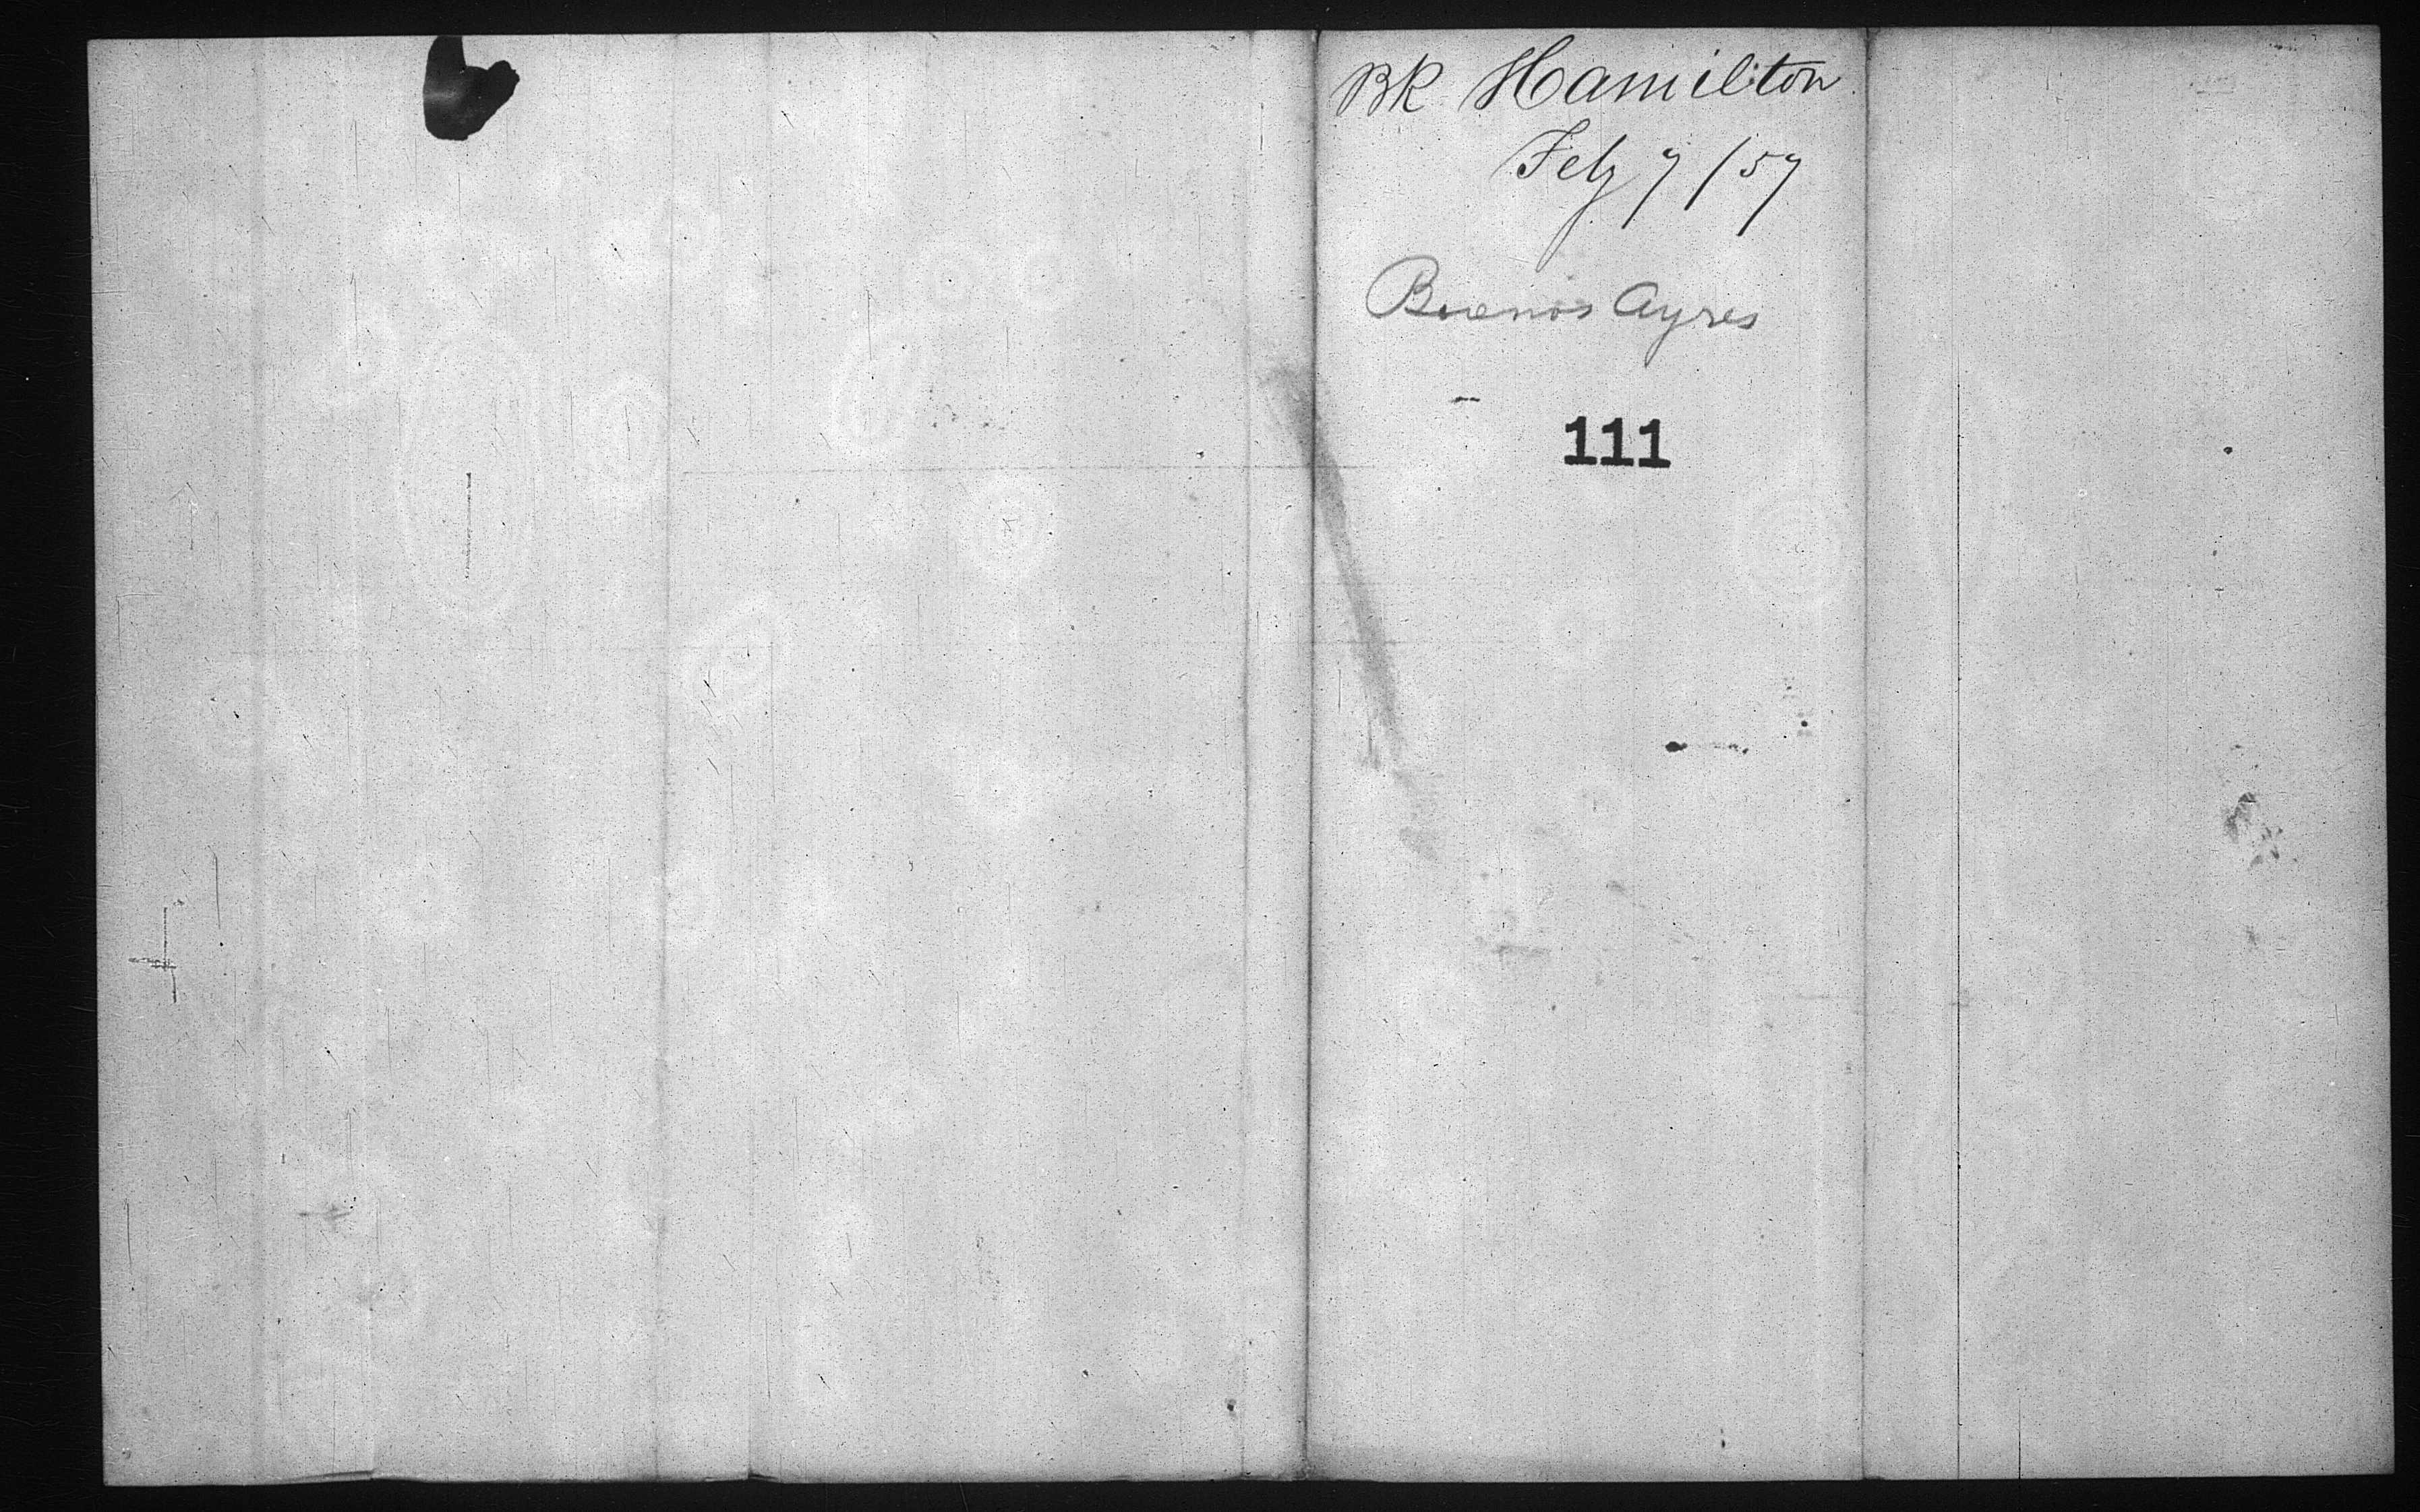 Bk Hamilton
Feb 7/57
Buenos Ayres
111